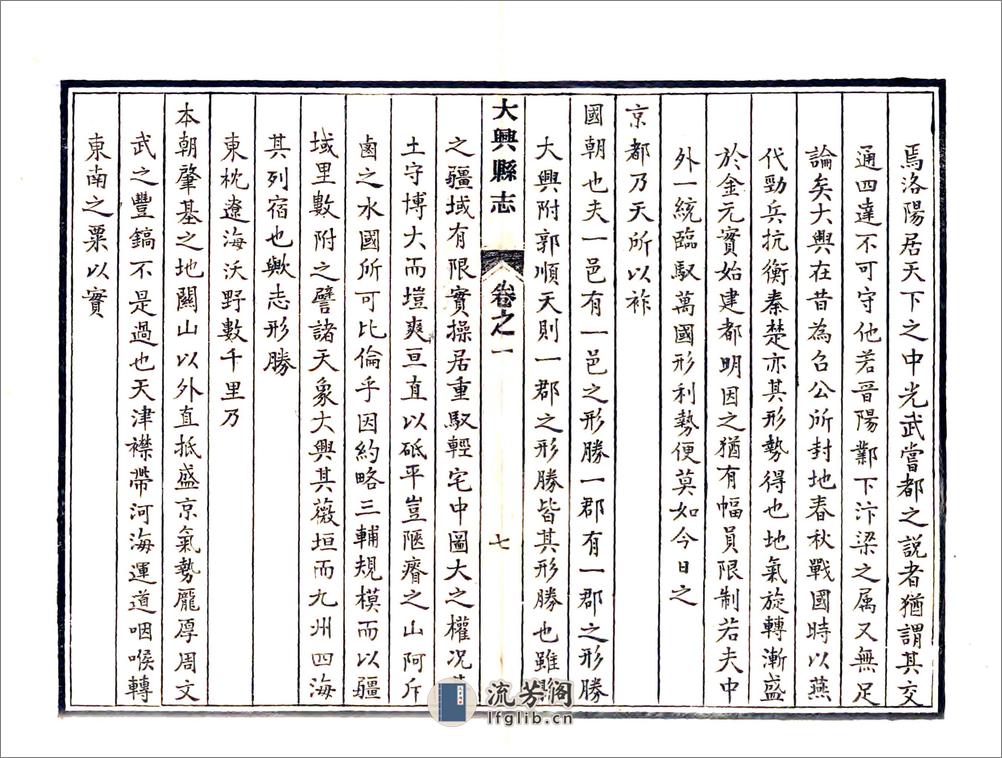 焉洛陽居天下之中光武嘗都之説者猶謂其交
通四達不可守他若晉陽鄴下汴梁之属又無足
論矣大興在昔為召公所封地春秋戰國時以燕
代勁兵抗衡秦楚亦其形勢得也地氣旋轉漸盛
於金元實始建都明因之猶有幅員限制若夫中
外一統臨馭萬國形利勢便莫如今日之
京都乃天所以祚
國朝也夫一邑有一邑之形勝一郡有一郡之形勝
大興附郭順天則一郡之形勝皆其形勝也雖縣
大興縣志
卷之一
七
之疆域有限實操居重馭輕宅中圖大之權况
土守博大而塏爽亘直以砥平豈陋瘠之山阿斥
鹵之水國所可比倫乎因約略三輔規模而以疆
域里數附之譬諸天象大興其薇垣而九州四海
其列宿也歟志形勝
東枕遼海沃野數千里乃
本朝肇基之地關山以外直抵盛京氣勢龐厚周文
武之豐鎬不是過也天津襟帶河海運道咽喉轉
東南之粟以實
流芳閣
lfglib.cn